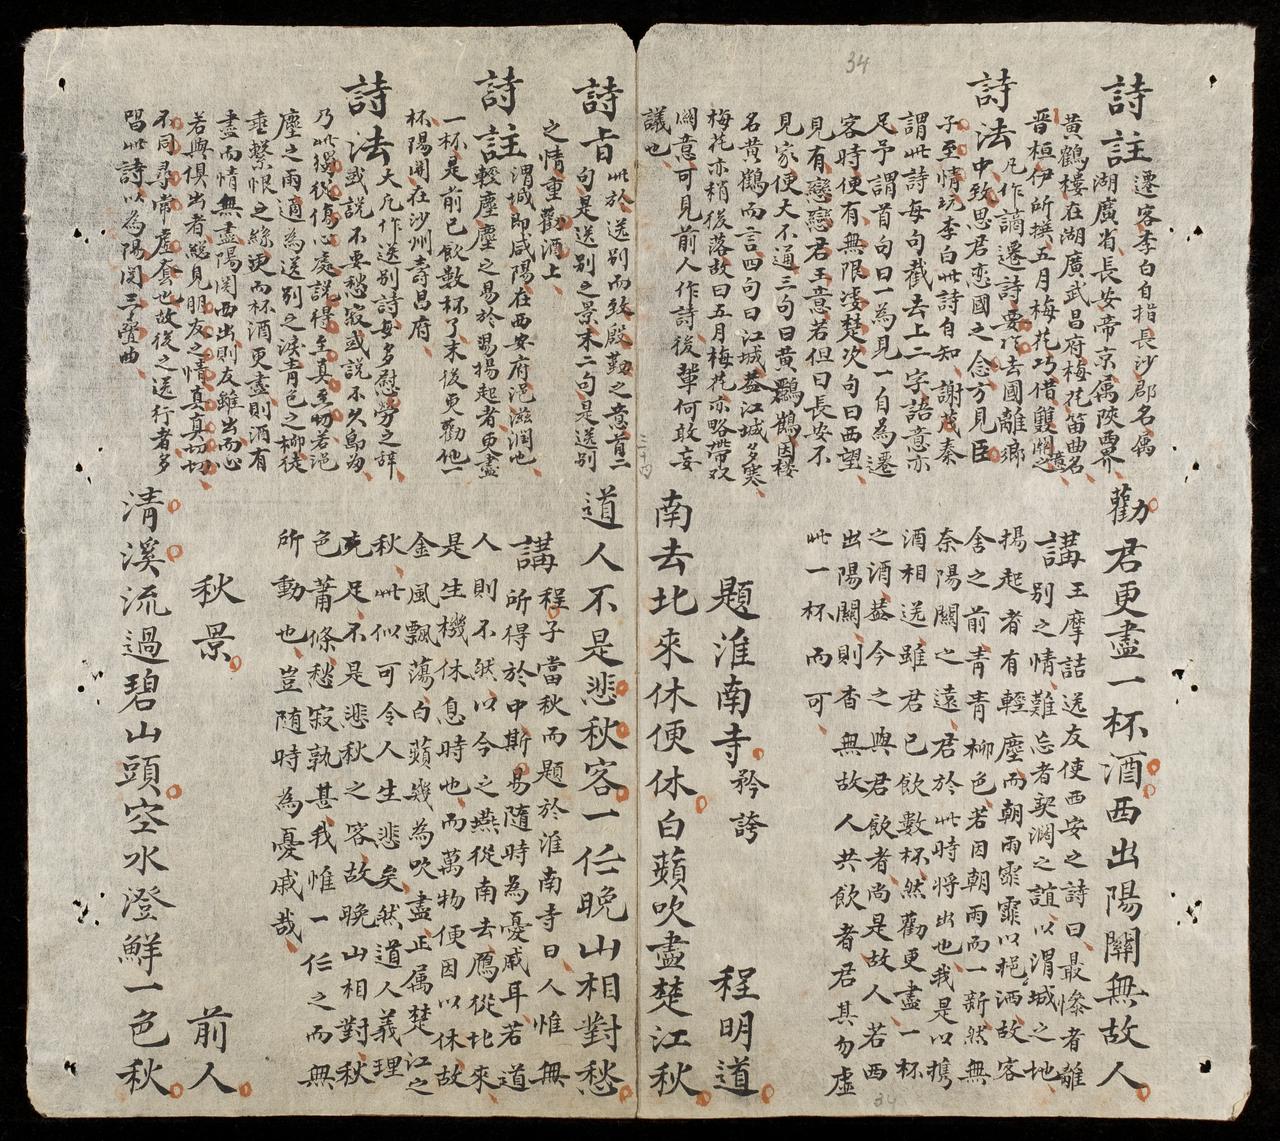 詩註 遷客李白自指長沙郡名屬
湖廣省長安帝京属陝西界
黃鶴樓在湖廣武昌府梅花笛曲名
晋桓伊所撰五月梅花巧借雙關之意
詩法 凡作謫遷詩要從去國離鄉
中致思君恋國之念方見臣
子至情玩李白此詩自知謝茂秦
謂此詩每句截去上二字語意亦
足予謂首句曰一為見一自為遷
客時便有無限淒楚次句曰西望
見有戀戀君王意若但曰長安不
見家便大不通三句曰黃鸝鶴因楼
名黃鶴而言四句曰江城蓋江城多寒
梅花亦稍後落故曰五月梅花亦略帶双
関意可見前人作詩後輩何敢妄
議也
勸君更盡一杯酒西出陽關無故人
講王摩詰送友使西安之詩曰最慘者離
別之情難忘者契濶之誼以渭城之地
揚起者有輕塵而朝雨霏霏以挹洒故客
舍之前青青柳色若因朝雨而一新然無
奈陽關之遠君於此時将出也我是以携
酒相送雖君已飲數杯然勸更盡一杯
之酒蓋今之與君飲者尚是故人若西
出陽關則杳無故人共飲者君其勿虛
此一杯而可
題淮南寺 矜誇 程明道
南去北來休便休白蘋吹盡楚江秋
三十四
34
34
詩旨 此於送別而致殷勤之意首二
句是送別之景末二句是送別
之情重勸酒上
詩註 渭城即咸陽在西安府浥滋潤也
輕塵塵之易於易揚起者更盡
一杯是前已飲數杯了末後更勸他一
杯陽関在沙州壽昌府
詩法 大凡作送別詩每多慰勞之辞
或說不要愁寂或說不久為
乃此獨從傷心處說得至真至切若浥
塵之雨適為送別之淚青色之柳徒
牽繫恨之絲更而杯酒更盡則酒有
盡而情無盡陽関西出則友雖出而心
若與俱出者總見朋友之情真真切切
不同尋常虛套也故後之送行者多
唱此詩以為陽関三疊曲
道人不是悲秋客一任晚山相對愁
講程子當秋而題於淮南寺曰人惟無
所得於中斯易隨時為憂戚耳若道
人則不然以今之燕從南去鴈從北來
是生機休息時也而萬物便因以休故
金風飄蕩白蘋幾為吹盡正属楚江之
秋此似可令人生悲矣然道人義理
克足不是悲秋之客故晚山相對秋
色蕭條愁寂孰甚我惟一任之而無
所動也豈随時為憂戚哉
秋景 前人
清溪流過碧山頭空水澄鮮一色秋